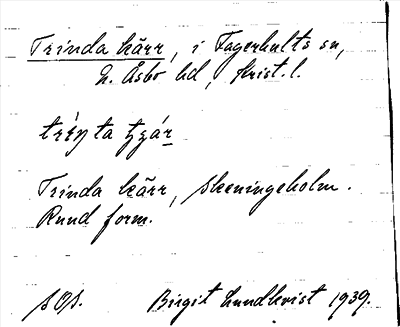 Trinda kärr, i Fagerhults sn,
N. Åsbo hd, Krist. l.
Trinda kärr, skeningeholm.
Rund form.
SOS. Birgit Lundkvist 1939.